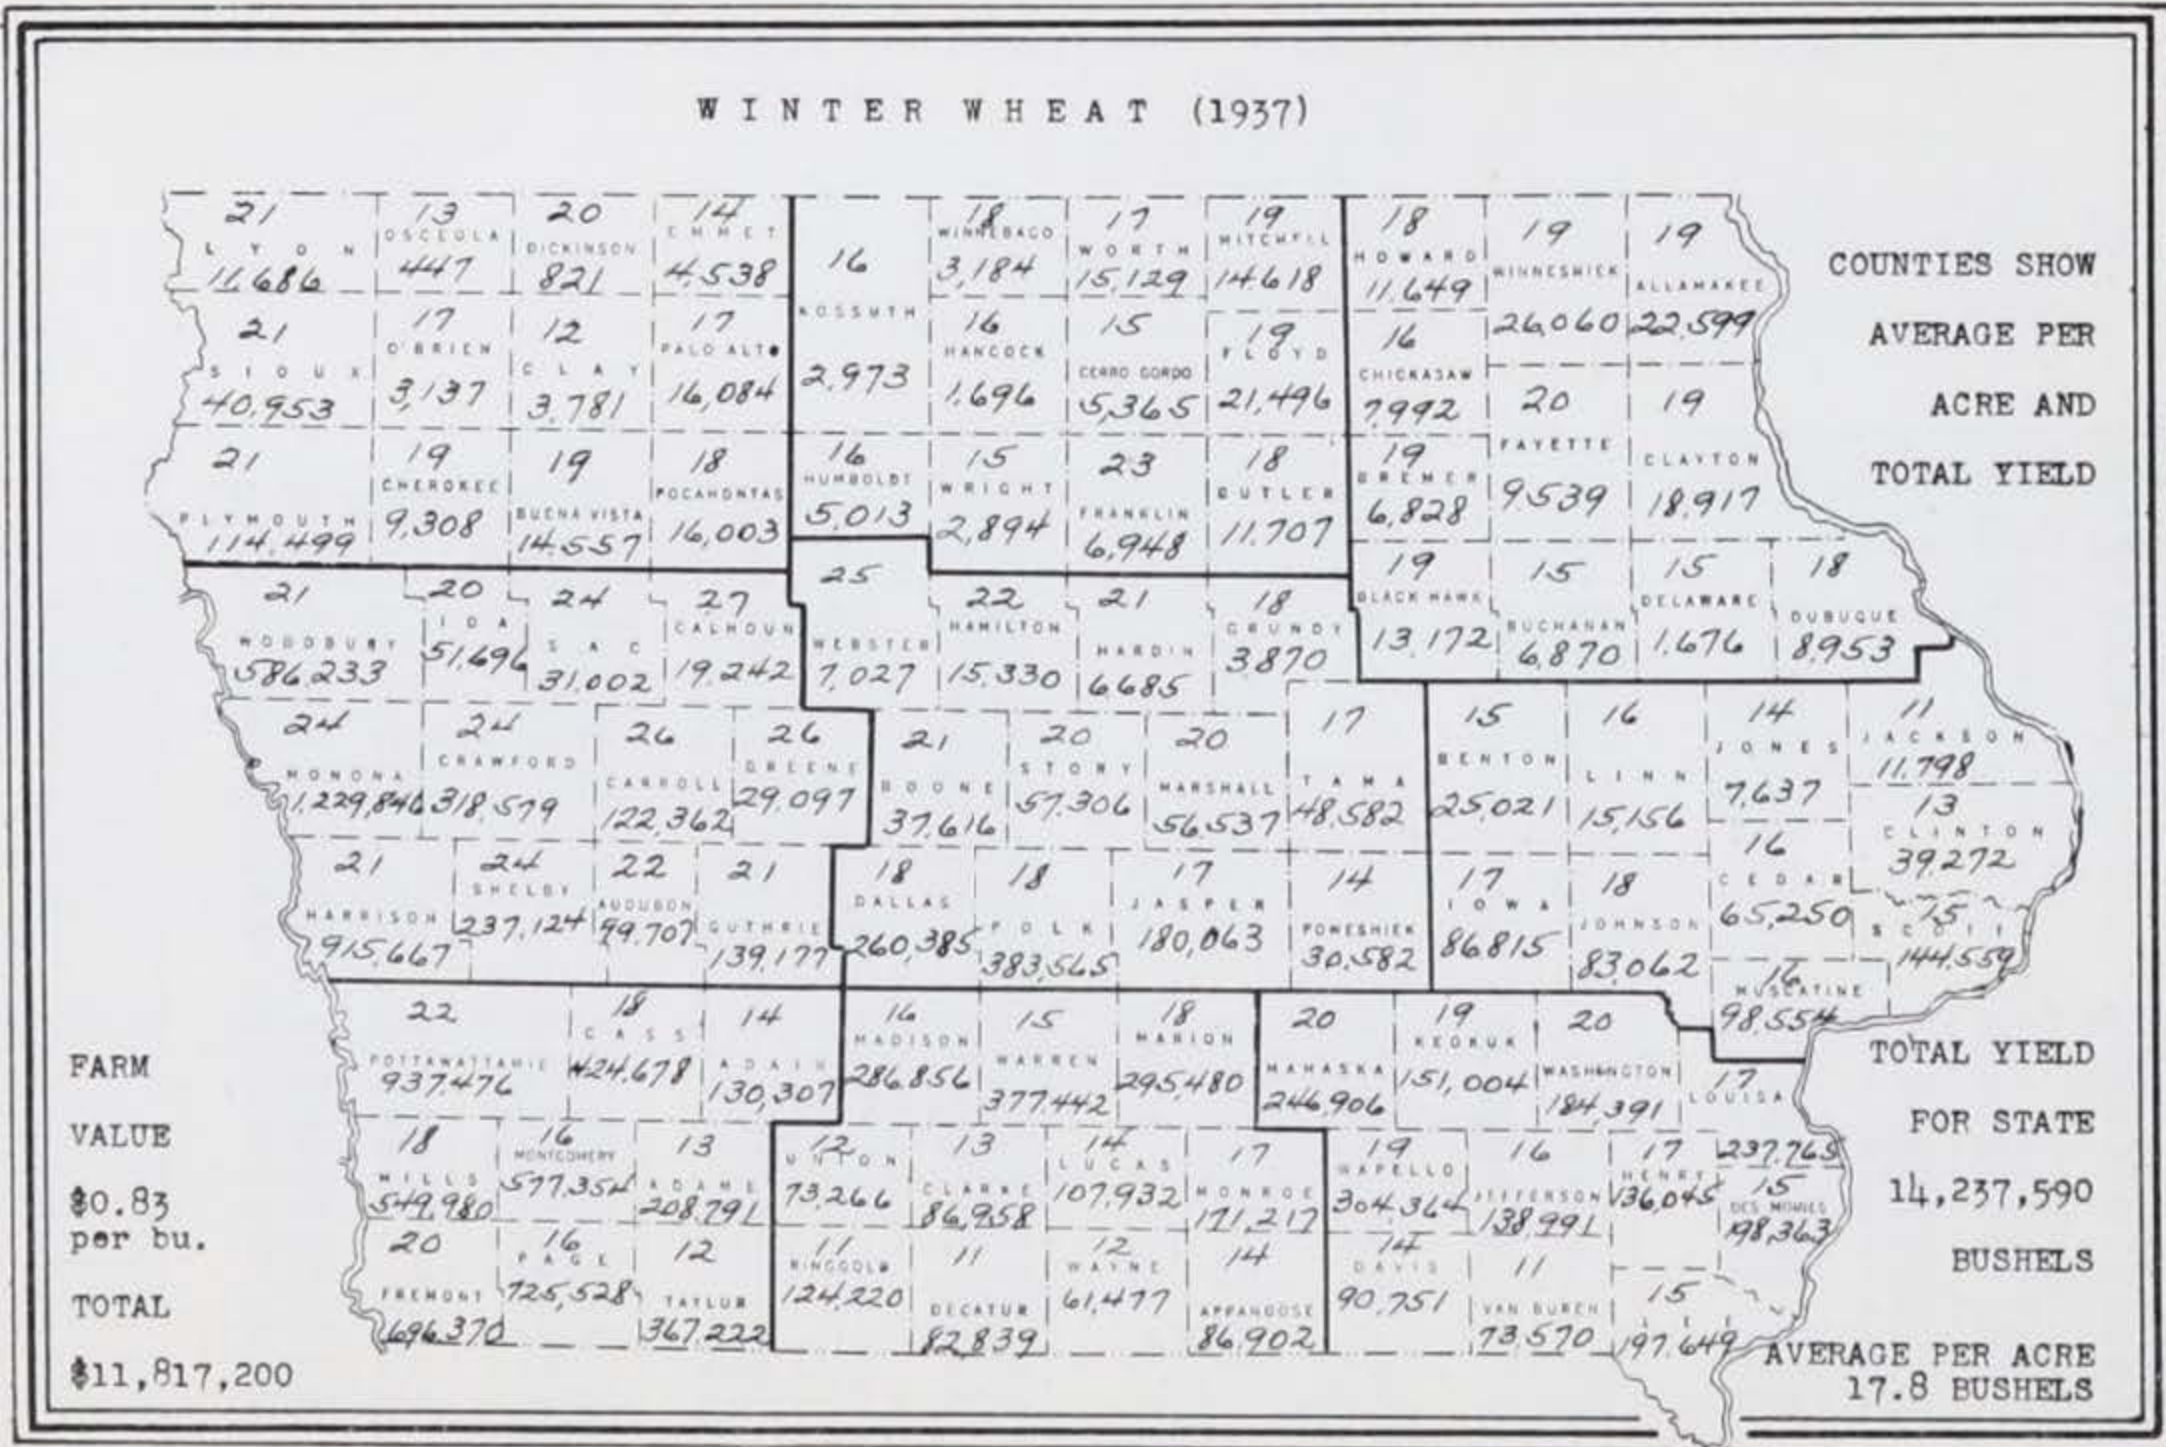 WINTER WHEAT (1937)
21 LYON 11,686
13 OSCEOLA 447
20 DICKINSON 821
14 EMMET 4,538
16 KOSSUTH 2,973
18 WINNEBAGO 3,184
17 WORTH 15,129
19 MITCHELL 14,618
18 HOWARD 11,649
19 WINNESHIEK 26,060
19 ALLAMAKEE 22,599
COUNTIES SHOW
AVERAGE PER
ACRE AND
TOTAL YIELD
21 SIOUX 40,953
17 O'BRIEN 3,137
12 CLAY 3,781
17 PALO ALTO 16,084
16 HANCOCK 1,696
15 CERRO GORDO 5,365
19 FLOYD 21,496
16 CHICKASAW 7,992
20 FAYETTE 9,539
19 CLAYTON 18,917
21 PLYMOUTH 114,499
19 CHEROKEE 9,308
19 BUENA VISTA 14,557
18 POCAHONTAS 16,003
16 HUMBOLDT 5,013
15 WRIGHT 2,894
23 FRANKLIN 6,948
18 BUTLER 11,707
19 BREMER 6,828
21 WOODBURY 586,233
20 IDA 51,696
24 SAC 31,002
27 CALHOUN 19,242
25 WEBSTER 7,027
22 HAMILTON 15,330
21 HARDIN 6,685
18 GRUNDY 3,870
19 BLACK HAWK 13,172
15 BUCHANAN 6,870
15 DELAWARE 1,676
18 DUBUQUE 8,953
24 MONONA 1,229,846
24 CRAWFORD 318,579
26 CARROLL 122,362
26 GREENE 29,097
21 BOONE 37,616
20 STORY 57,306
20 MARSHALL 56,537
17 TAMA 48,582
15 BENTON 25,021
16 LINN 15,156
14 JONES 7,637
11 JACKSON 11,798
13 CLINTON 39,272
21 HARRISON 915,667
24 SHELBY 237,124
22 AUDUBON 99,707
21 GUTHRIE 139,177
18 DALLAS 260,385
18 POLK 383,565
17 JASPER 180,063
14 POWESHIEK 30,582
17 IOWA 86,815
18 JOHNSON 83,062
16 CEDAR 65,250
15 SCOTT 144,559
16 MUSCATINE 98,554
22 POTTAWATTAMIE 937,476
18 CASS 424,678
14 ADAIR 130,307
16 MADISON 286,856
15 WARREN 377,442
18 MARION 295,480
20 MAHASKA 246,906
19 KEOKUK 151,004
20 WASHINGTON 184,391
17 LOUISA 237,765
18 MILLS 549,980
16 MONTGOMERY 577,354
13 ADAMS 208,791
12 UNION 73,266
13 CLARKE 86,958
14 LUCAS 107,932
17 MONROE 171,217
19 WAPELLO 304,364
16 JEFFERSON 138,991
17 HENRY 136,045
15 DES MOINES 198,363
20 FREMONT 696,370
16 PAGE 725,528
12 TAYLOR 367,222
11 RINGGOLD 124,220
11 DECATUR 82,839
12 WAYNE 61,477
14 APPANOOSE 86,902
14 DAVIS 90,751
11 VAN BUREN 73,570
15 LEE 197,649
FARM
VALUE
$0.83
per bu.
TOTAL
$11,817,200
TOTAL YIELD
FOR STATE
14,237,590
BUSHELS
AVERAGE PER ACRE
17.8 BUSHELS